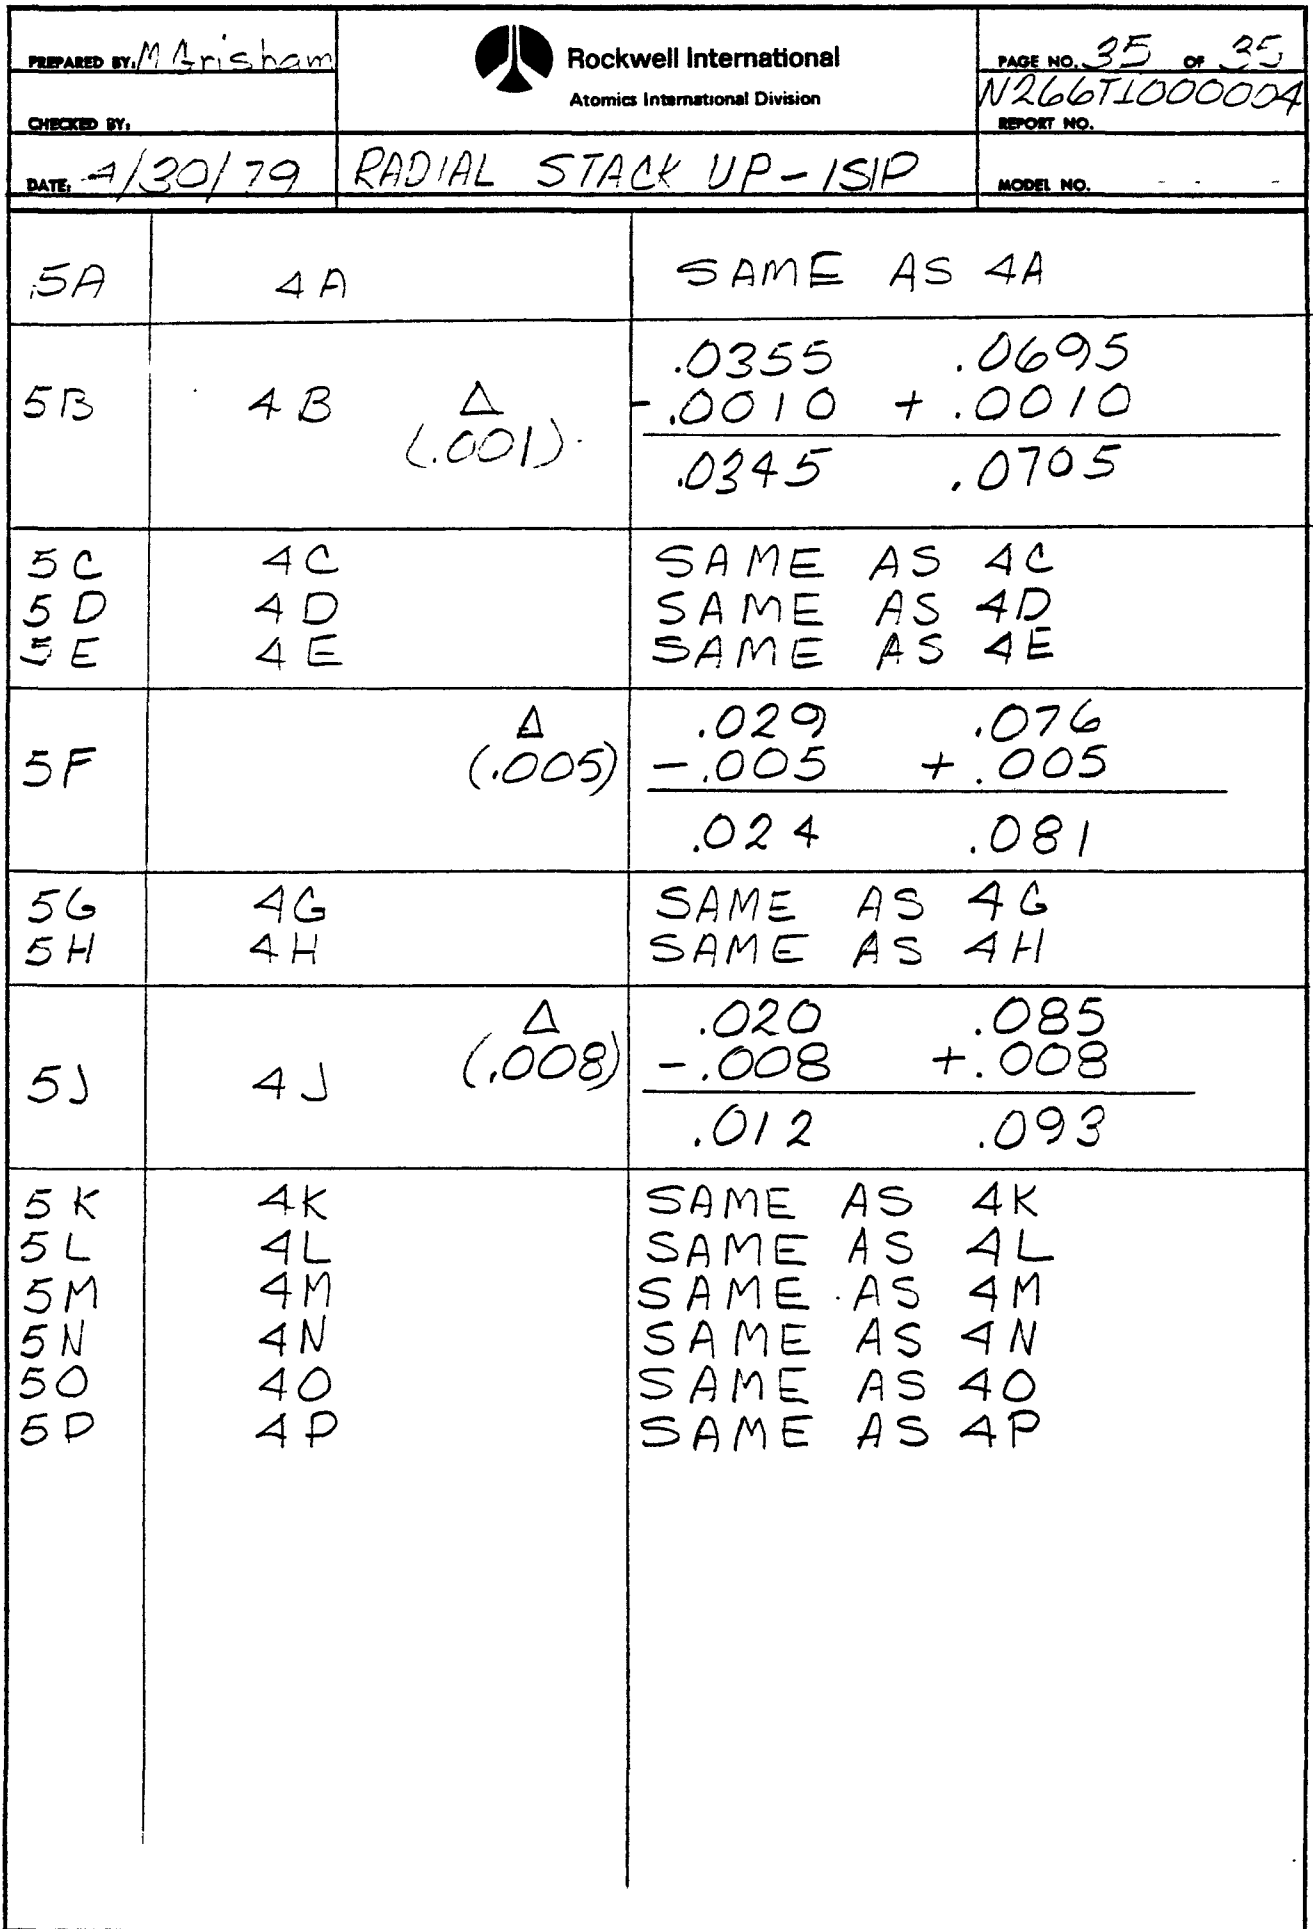 PREPARED BY: M Grisham
CHECKED BY:
DATE: 4/30/79
Rockwell International
Atomics International Division
RADIAL STACK UP - ISIP
PAGE NO. 35 OF 35
N266TI000004
REPORT NO.
MODEL NO.
5A 4A SAME AS 4A
.0355 .0695
5B 4B Δ -.0010 + .0010
(.001) .0345 .0705
5C 4C SAME AS 4C
5D 4D SAME AS 4D
5E 4E SAME AS 4E
Δ .029 .076
5F (.005) -.005 + .005
.024 .081
5G 4G SAME AS 4G
5H 4H SAME AS 4H
Δ .020 .085
5J 4J (.008) -.008 +.008
.012 .093
5K 4K SAME AS 4K
5L 4L SAME AS 4L
5M 4M SAME AS 4M
5N 4N SAME AS 4N
5O 4O SAME AS 4O
5P 4P SAME AS 4P